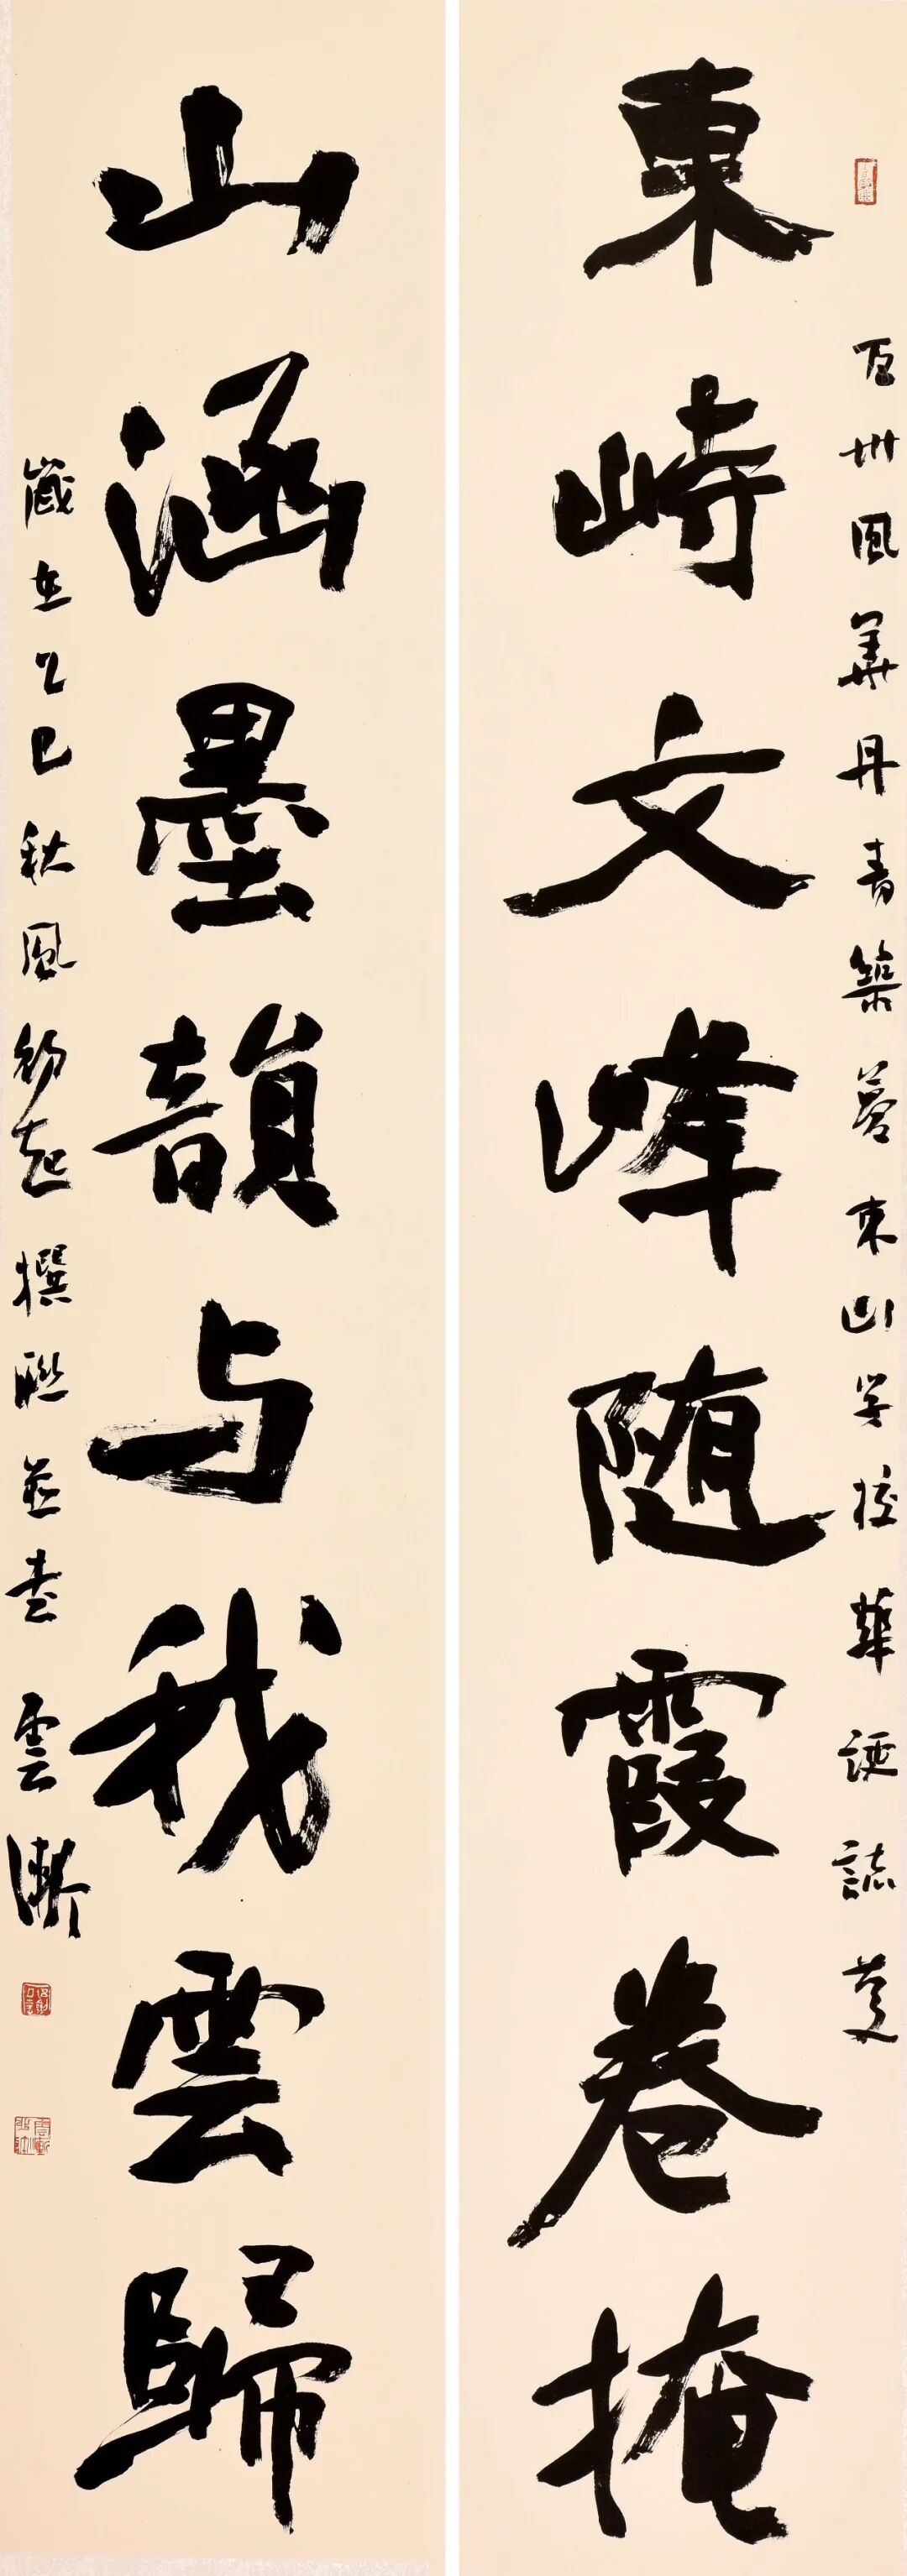 百卅風華丹青築夢東山学校華誕誌慶
東峙文峰随霞卷掩
山涵墨韻与我雲歸
歲在乙巳秋風初起撰聯并書雲漸